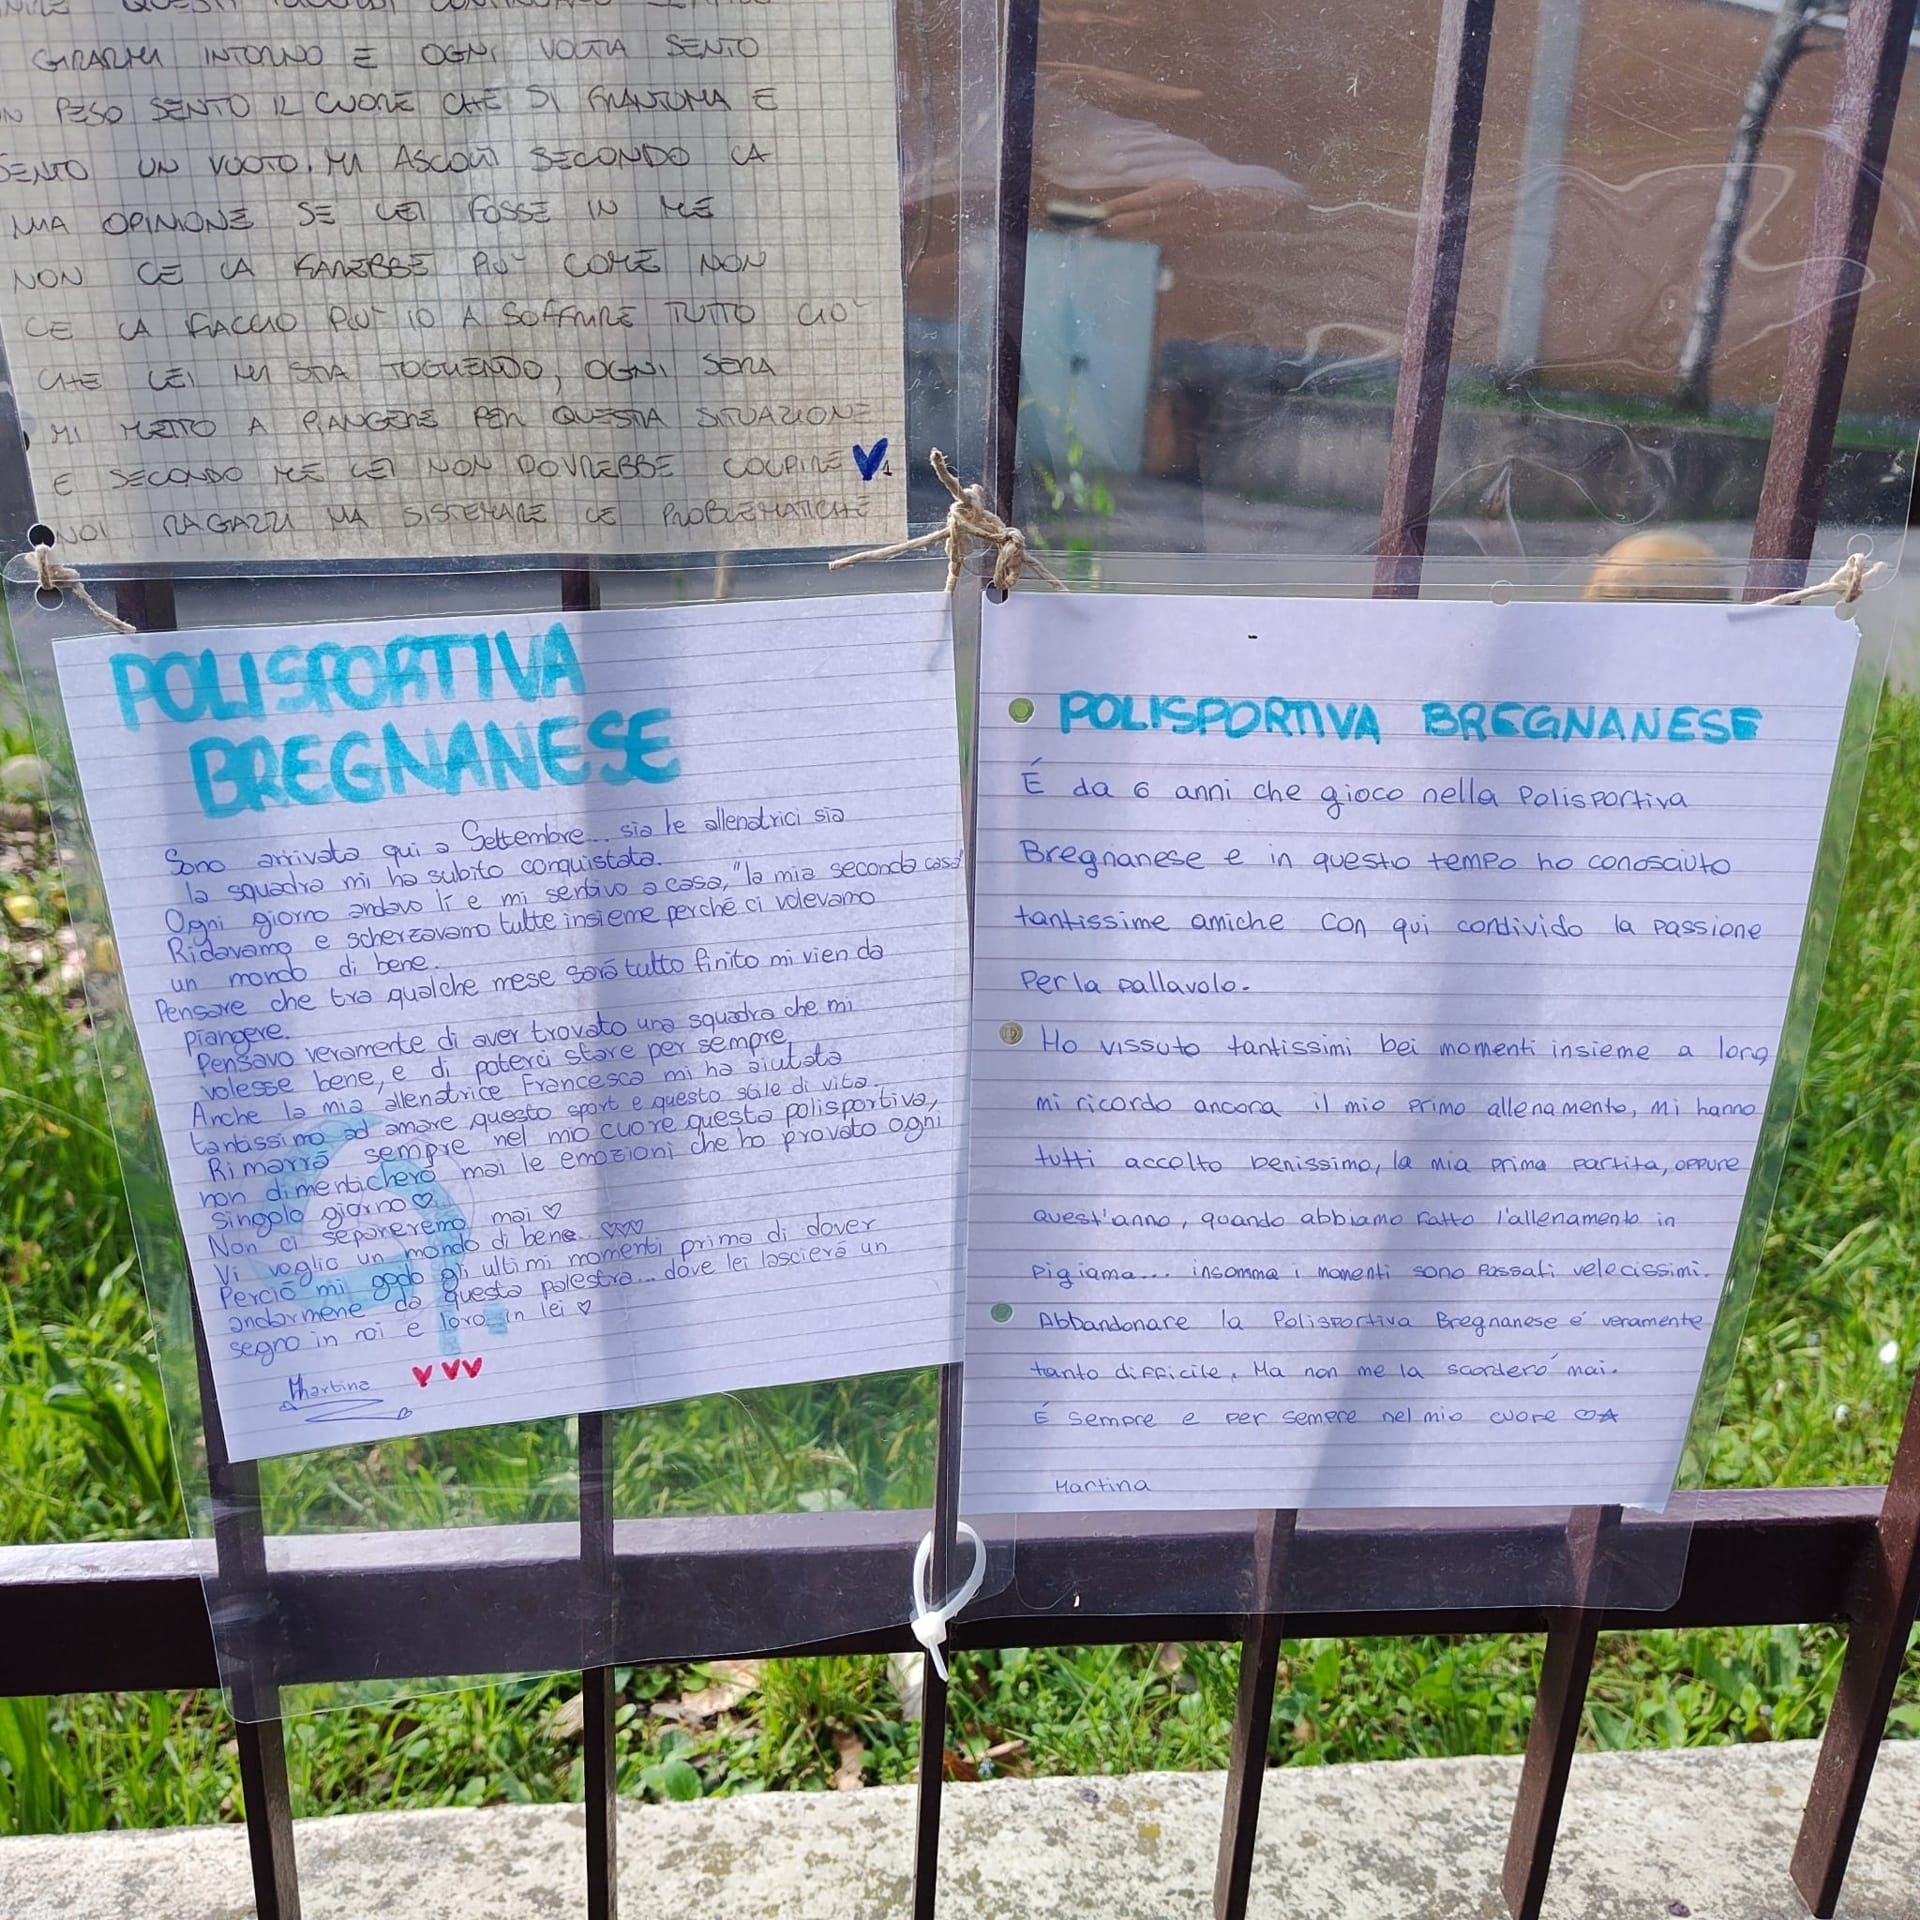 QUESTI RICORDI CONTINUANO SEMPRE
GIRARMI INTORNO E OGNI VOLTA SENTO
UN PESO SENTO IL CUORE CHE SI FRANTUMA E
SENTO UN VUOTO. MI ASCOLTI SECONDO LA
MIA OPINIONE SE LEI FOSSE IN ME
NON CE LA FAREBBE PIU' COME NON
CE LA FACCIO PIU' IO A SOFFRIRE TUTTO CIO'
CHE LEI MI STA TOGLIENDO, OGNI SERA
MI METTO A PIANGERE PER QUESTA SITUAZIONE
E SECONDO ME LEI NON DOVREBBE COLPIRE
NOI RAGAZZI MA SISTEMARE LE PROBLEMATICHE
POLISPORTIVA
BREGNANESE
Sono arrivata qui a Settembre... sia le allenatrici sia
la squadra mi ha subito conquistata.
Ogni giorno andavo lí e mi sentivo a casa, "la mia seconda casa"
Ridavamo e scherzavamo tutte insieme perché ci volevamo
un mondo di bene.
Pensare che tra qualche mese sará tutto finito mi vien da
piangere.
Pensavo veramente di aver trovato una squadra che mi
volesse bene, e di poterci stare per sempre,
Anche la mia allenatrice Francesca mi ha aiutata
tantissimo ad amare questo sport e questo stile di vita.
Rimarrá sempre nel mio cuore questa polisportiva,
non dimenticheró mai le emozioni che ho provato ogni
singolo giorno ♡
Non ci separeremo mai ♡
Vi voglio un mondo di bene.. ♡♡♡
Perció mi godo gli ultimi momenti prima di dover
andarmene da questa palestra... dove lei lascierá un
segno in noi e loro in lei ♡
Martina
POLISPORTIVA BREGNANESE
É da 6 anni che gioco nella Polisportiva
Bregnanese e in questo tempo ho conosciuto
tantissime amiche con qui condivido la passione
per la pallavolo.
Ho vissuto tantissimi bei momenti insieme a loro,
mi ricordo ancora il mio primo allenamento, mi hanno
tutti accolto benissimo, la mia prima partita, oppure
quest'anno, quando abbiamo fatto l'allenamento in
pigiama... insomma i momenti sono passati velocissimi.
Abbandonare la Polisportiva Bregnanese e' veramente
tanto difficile. Ma non me la scorderó mai.
É sempre e per sempre nel mio cuore ♡☆
Martina